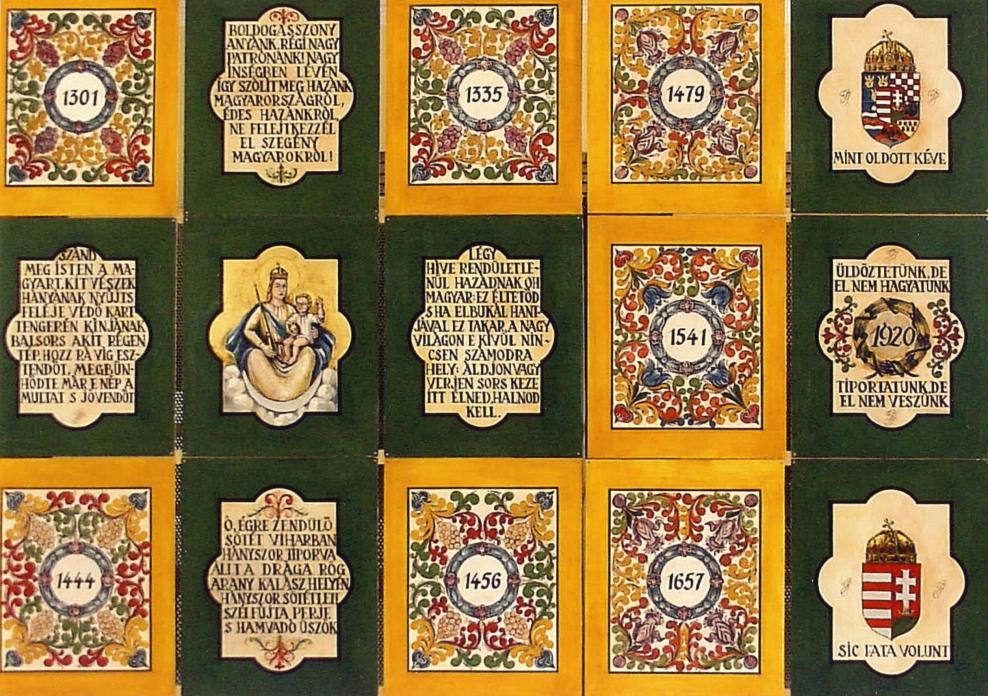 1301
BOLDOGASSZONY
ANYÁNK, RÉGI NAGY
PATRÓNÁNK! NAGY
ÍNSÉGBEN LÉVÉN
ÍGY SZÓLÍT MEG HAZÁNK
MAGYARORSZÁGRÓL,
ÉDES HAZÁNKRÓL,
NE FELEJTKEZZÉL
EL SZEGÉNY
MAGYAROKRÓL!
1335
1479
MINT OLDOTT KÉVE
SZÁND
MEG ISTEN A MA-
GYART, KIT VÉSZEK
HÁNYÁNAK, NYÚJTS
FELÉJE VÉDŐ KART
TENGERÉN KÍNJÁNAK
BALSORS AKIT RÉGEN
TÉP, HOZZ RÁ VÍG ESZ-
TENDŐT, MEGBŰN-
HŐDTE MÁR E NÉP A
MULTAT S JÖVENDŐT
LÉGY
HÍVE RENDÜLETLE-
NÜL HAZÁDNAK OH
MAGYAR: EZ ÉLTETŐD
S HA ELBUKÁL HANT-
JÁVAL EZ TAKAR, A NAGY
VILÁGON E KÍVÜL NIN-
CSEN SZÁMODRA
HELY: ÁLDJON VAGY
VERJEN SORS KEZE
ITT ÉLNED, HALNOD
KELL.
1541
ÜLDÖZTETÜNK, DE
EL NEM HAGYATUNK
1920
TIPORTATUNK, DE
EL NEM VESZÜNK
1444
Ó, ÉGRE ZENDÜLŐ
SÖTÉT VIHARBAN
HÁNYSZOR TIPORVA
ÁLLT A DRÁGA RÖG
ARANY KALÁSZ HELYÉN
HÁNYSZOR SÖTÉTLETT
SZÉLFÚJTA PERJE
S HAMVADÓ ÜSZÖK
1456
1657
SIC FATA VOLUNT